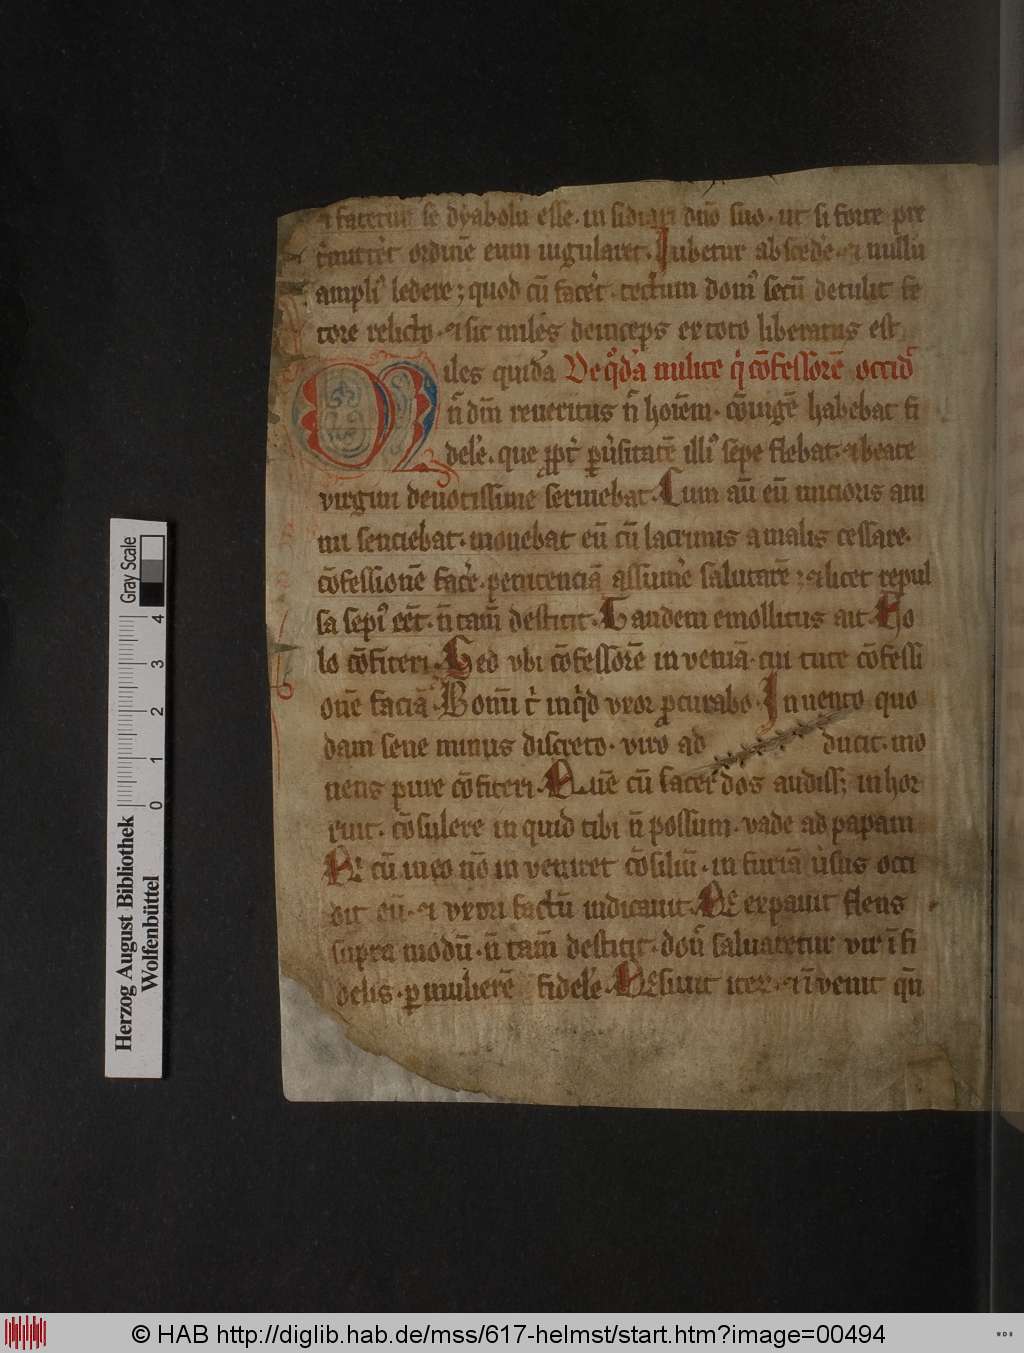 ⁊ fatetur se dyabolū esse · in sidiari dn̄o suo · ut si forte pre
t̄mitter̄t ordinē eum iugularet · Jubetur abscedē · ⁊ nullū
ampliꝰ ledere ; quod cū facēt · tectum domꝰ secū detulit fe
tore relicto · ⁊ sic miles deinceps ex toto liberatus est
Miles quidā De qͦdā milite qͥ cōfessorē occid
n̄ dm̄ reueritus n̄ hoīem · cōiugē habebat fi
delē · que ꝓpt̄ ꝑusitatē illiꝰ sepe flebat · ⁊ beate
virgini deuotissime seruiebat · Cum aū eū micioris ani
mi senciebat · monebat eū cū lacrimis a malis cessare ·
cōfessionē facē · penitenciā assumē salutarē · ⁊ licet repul
sa sepiꝰ eēt · n̄ tam̄ destitit · Tandem emollitus ait · Vo
lo cōfiteri · Sed vbi cōfessorē in veniā · cui tute cōfessi
onē faciā · Bonū t̄ inqͥd vxor ꝓcurabo · Jn uento quo
dam sene minus discreto · viro ad ducit · mo
nens pure cōfiteri · Quē cū sacerdos audissꝫ in hor
ruit · cōsulere in quid tibi n̄ possum · vade ad papam
At cū in eo nō in veniret cōsiliū · in furiā ūsus occi
dit eū · ⁊ vxori factū indicauit · At expauit flens
supra modū · n̄ tam̄ destitit · don̄ saluaretur vir ī fi
delis · ꝑ mulierē fidelē · At siuit iter · ⁊ īvenit qn̄
Gray Scale
0 1 2 3 4
Herzog August Bibliothek
Wolfenbüttel
© HAB http://diglib.hab.de/mss/617-helmst/start.htm?image=00494